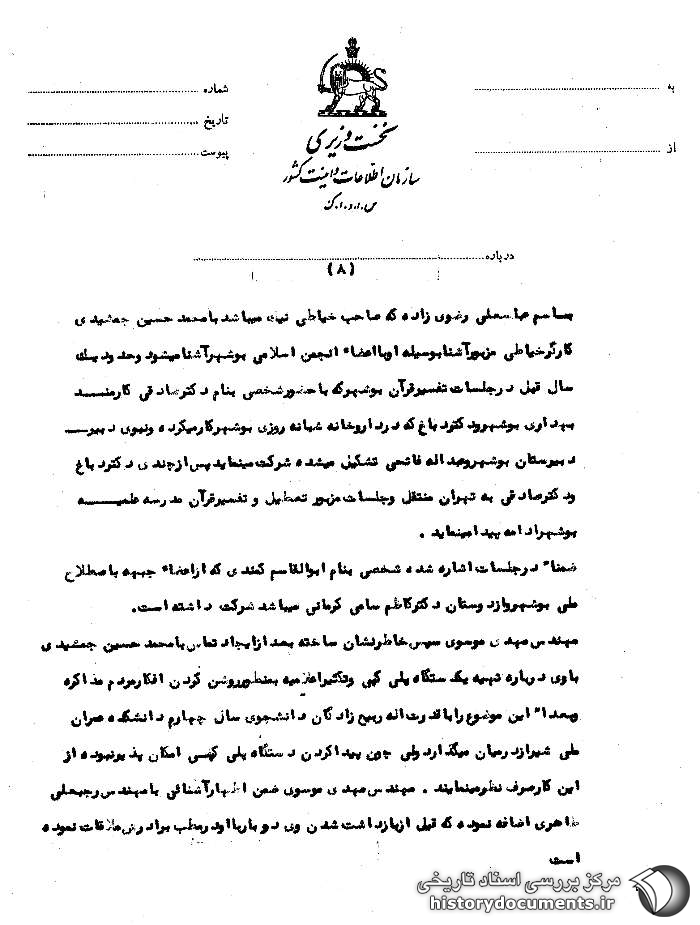 به
از
شماره
تاریخ
پیوست
نخست وزیری
سازمان اطلاعات و امنیت کشور
س.ا.و.ا.ک
درباره
(۸)
بنام عباسعلی رضوی زاده که صاحب خیاطی نیک میباشد با محمد حسین جمشیدی
کارگر خیاطی مزبور آشنا بوسیله او با اعضاء انجمن اسلامی بوشهر آشنا میشود و حدود یک
سال قبل در جلسات تفسیر قرآن بوشهر که با حضور شخصی بنام دکتر صادقی کارمند
بهداری بوشهر و دکتر دباغ که در داروخانه شبانه روزی بوشهر کار میکرده و نبوی دبیر
دبیرستان بوشهر و عبداله فاتحی تشکیل میشده شرکت مینماید پس از چندی دکتر دباغ
و دکتر صادقی به تهران منتقل و جلسات مزبور تعطیل و تفسیر قرآن مدرسه علمیه
بوشهر ادامه پیدا مینماید .
ضمنا" در جلسات اشاره شده شخصی بنام ابوالقاسم کمندی که از اعضاء جبهه باصطلاح
ملی بوشهر و از دوستان دکتر کاظم سامی کرمانی میباشد شرکت داشته است.
مهندس مهدی موسوی سپس خاطرنشان ساخته بعد از ایجاد تماس با محمد حسین جمشیدی
با وی درباره تهیه یک دستگاه پلی کپی و تکثیر اعلامیه بمنظور روشن کردن افکار مردم مذاکره
و بعدا" این موضوع را با قدرت اله ربیع زادگان دانشجوی سال چهارم دانشکده عمران
ملی شیراز درمیان میگذارد ولی چون پیدا کردن دستگاه پلی کپی امکان پذیر نبوده از
این کار صرف نظر مینمایند . مهندس مهدی موسوی ضمن اظهار آشنائی با مهندس رجبعلی
طاهری اضافه نموده که قبل از بازداشت شدن وی دو بار با او در مطب برادرش ملاقات نموده
است
مرکز بررسی اسناد تاریخی
historydocuments.ir